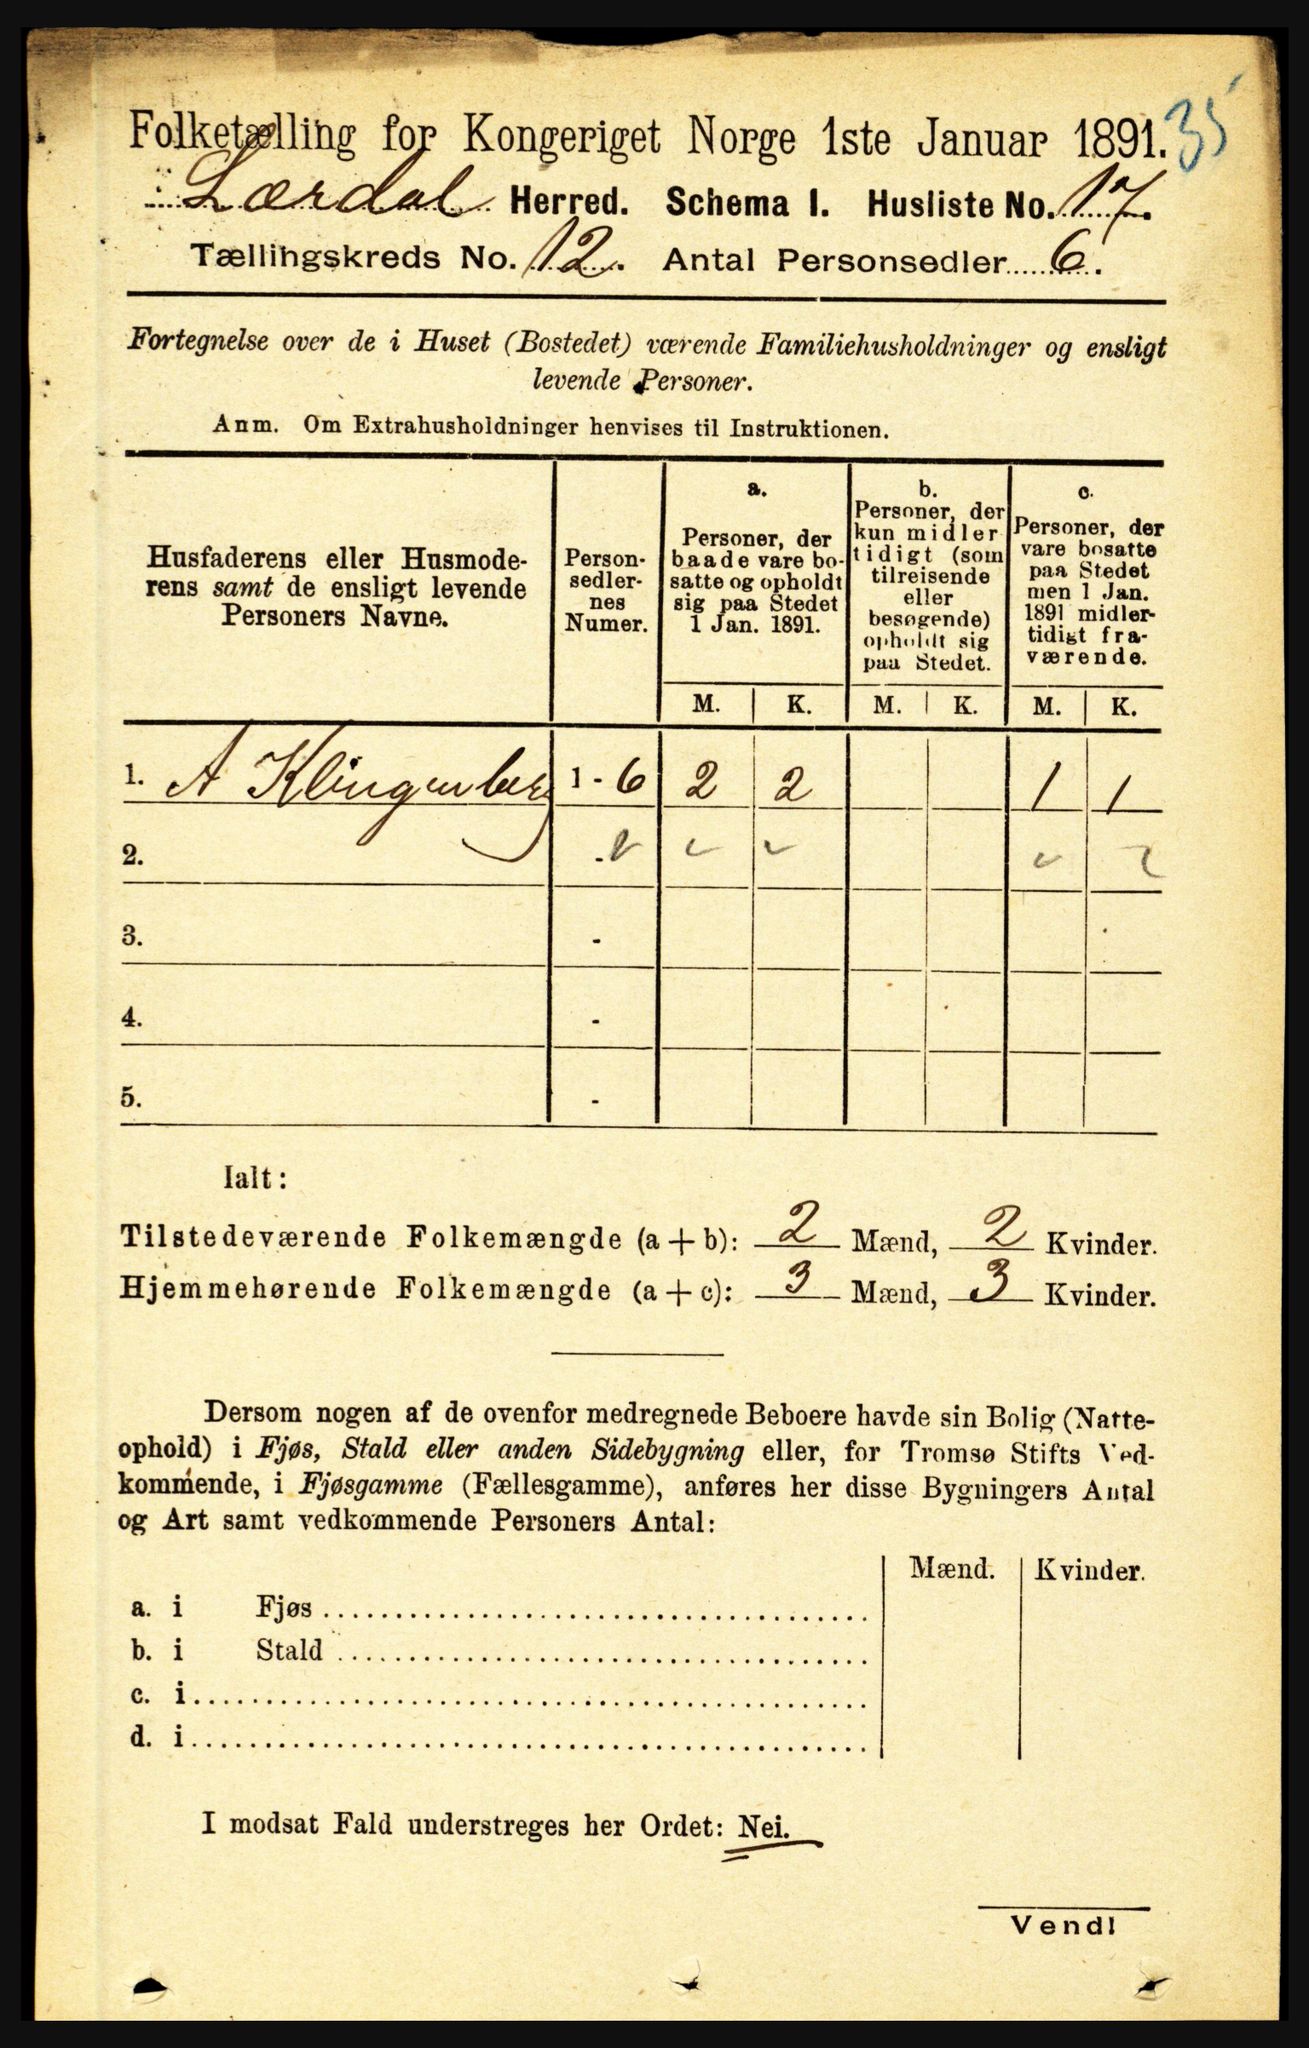 Folketælling for Kongeriget Norge 1ste Januar 1891. 35
Lærdal Herred. Schema I. Husliste No. 17.
Tællingskreds No. 12. Antal Personsedler 6.
Fortegnelse over de i Huset (Bostedet) værende Familiehusholdninger og ensligt
levende Personer.
Anm. Om Extrahusholdninger henvises til Instruktionen.
Husfaderens eller Husmode-
rens samt de ensligt levende
Personers Navne.
Person-
sedler-
nes
Numer.
a.
Personer, der
baade vare bo-
satte og opholdt
sig paa Stedet
1 Jan. 1891.
b.
Personer, der
kun midler
tidigt (som
tilreisende
eller
besøgende)
opholdt sig
paa Stedet.
c.
Personer, der
vare bosatte
paa Stedet
men 1 Jan.
1891 midler-
tidigt fra-
værende.
M. K. M. K. M. K.
1. A Klingenberg 1 - 6 2 2 1 1
2. -
3. -
4. -
5. -
Ialt:
Tilstedeværende Folkemængde (a + b): 2 Mænd, 2 Kvinder.
Hjemmehørende Folkemængde (a + c): 3 Mænd, 3 Kvinder.
Dersom nogen af de ovenfor medregnede Beboere havde sin Bolig (Natte-
ophold) i Fjøs, Stald eller anden Sidebygning eller, for Tromsø Stifts Ved-
kommende, i Fjøsgamme (Fællesgamme), anføres her disse Bygningers Antal
og Art samt vedkommende Personers Antal:
Mænd. Kvinder.
a. i Fjøs
b. i Stald
c. i
d. i
I modsat Fald understreges her Ordet: Nei.
Vend!